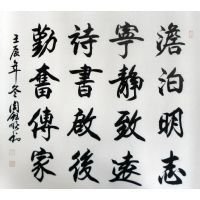 澹泊明志
寧靜致遠
詩書啟後
勤奮傳家
壬辰年冬